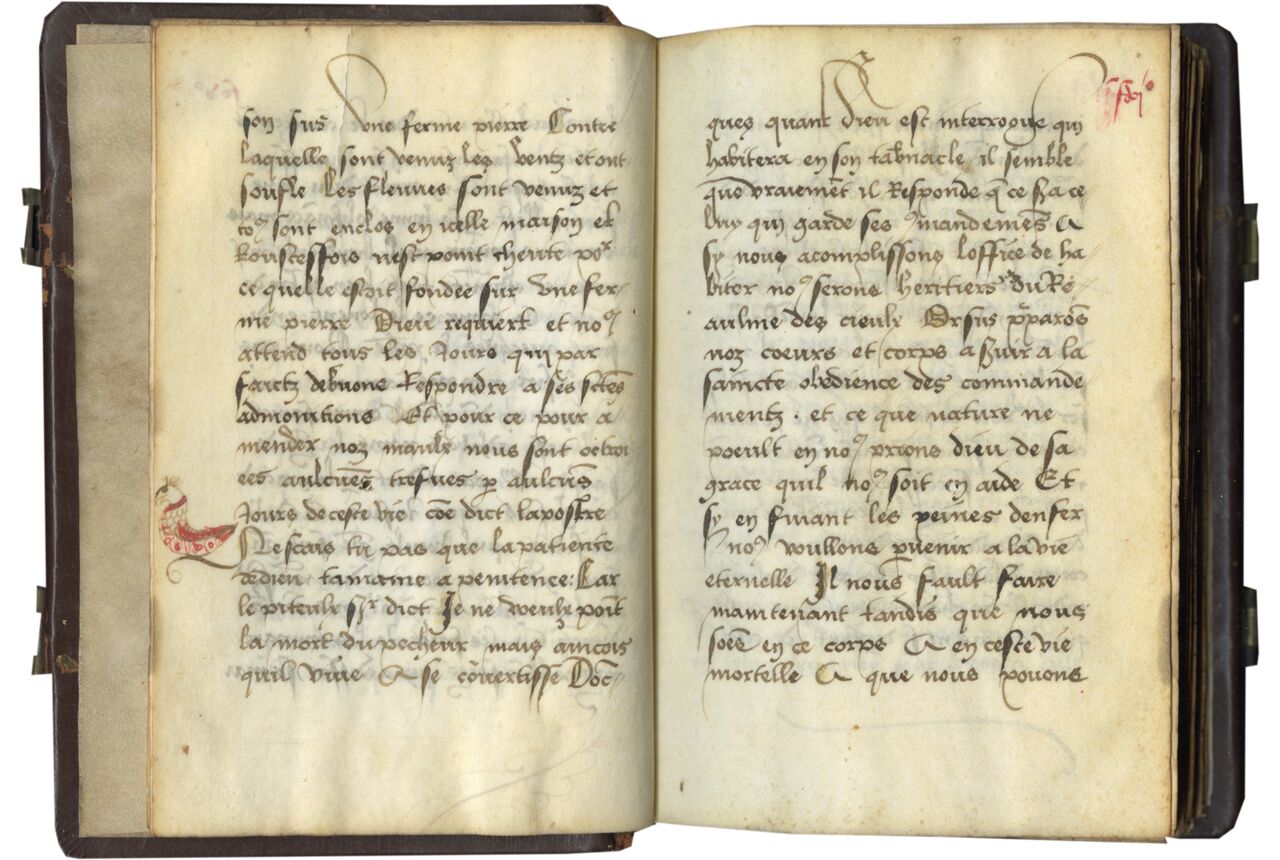 son sus Une ferme pierre Contre
laquelle sont venuz les ventz et ont
soufle Les fleuves sont venuz et
to⁹ sont enclos en icelle maison et
toutesfois nest point cheute poʳ
ce quelle estoit fondee sur Une fer-
me pierre Dieu requiert et no⁹
attend tous les Jours qui par
faictz debvons Respondre a ses sctēs
admonitions Et pour ce pour a-
mender noz maulx nous sont octroi
ees aulcuēs trefues p̱ aulcūs
Jours de ceste vie cōe dict lapostre
Ne scais tu pas que la patiente
de dieu tamaine a penitence: Car
le piteulx Sʳ dict Je ne veulx poīt
la mort du pecheur mais aincois
quil vive & se cōvertisse Dōc-
ques quant dieu est interrogue qui
habitera en son tab̄nacle il semble
que vraiemēt il Responde q̄ ce sʒa ce-
luy qui garde ses ꝯmandemēs &
sy nous acomplissons loffice de ha-
biter no⁹ serons heritiers du Re-
aulme des cieulx Orsus p̄parōs
noz coeurs et corps a sʒuir a la
saincte obedience des commande-
mentz. et ce que nature ne
poeult en no⁹ prions dieu de sa
grace quil no⁹ soit en aide Et
sy en fuiant les peines denfer
no⁹ voullons p̱uenir a la vie
eternelle Il nous fault faire
maintenant tandis que nous
soēs en ce corps & en ceste vie
mortelle & que nous povons